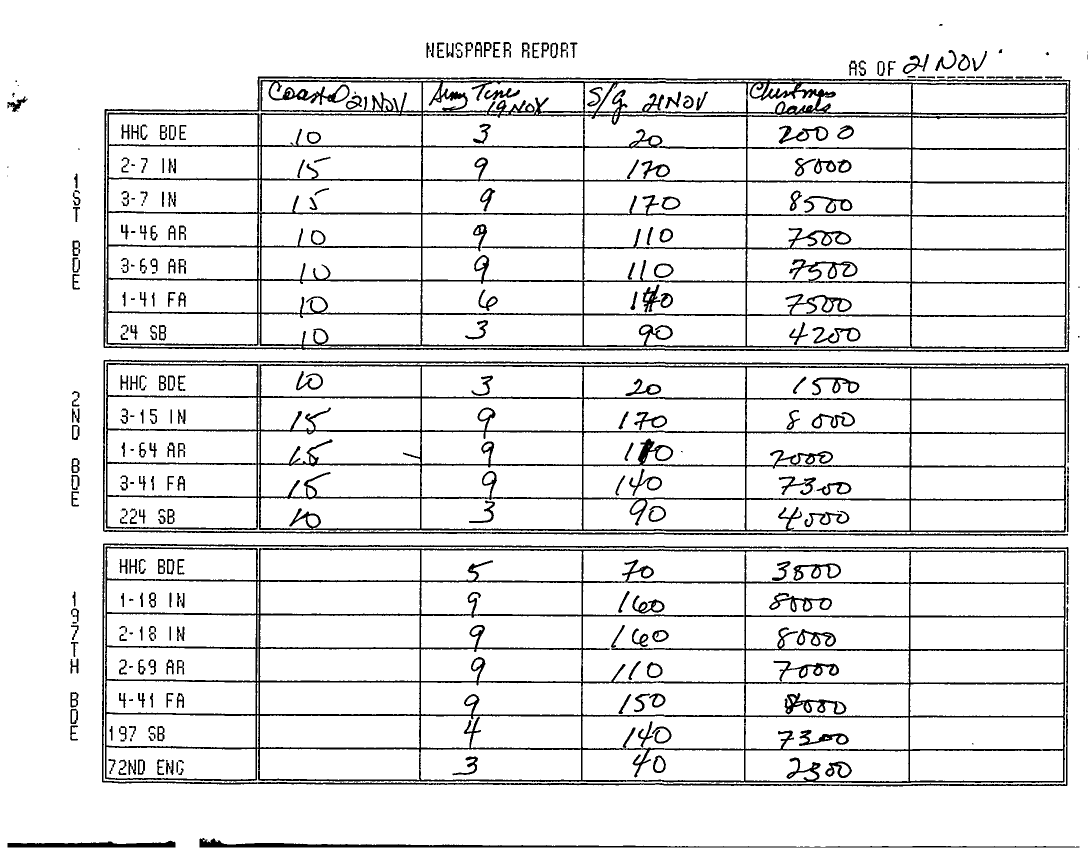 NEWSPAPER REPORT
AS OF 21 NOV
Coastal 21 NOV Army Times 19 NOV S/G 21 NOV Christmas cards
1ST BDE
HHC BDE 10 3 20 2000
2-7 IN 15 9 170 8000
3-7 IN 15 9 170 8500
4-46 AR 10 9 110 7500
3-69 AR 10 9 110 7500
1-41 FA 10 6 140 7500
24 SB 10 3 90 4200
2ND BDE
HHC BDE 10 3 20 1500
3-15 IN 15 9 170 8000
1-64 AR 15 9 7000
3-41 FA 15 9 140 7300
224 SB 10 3 90 4000
197TH BDE
HHC BDE 5 70 3800
1-18 IN 9 160 8000
2-18 IN 9 160 8000
2-69 AR 9 110 7000
4-41 FA 9 150 8000
197 SB 4 140 7300
72ND ENG 3 40